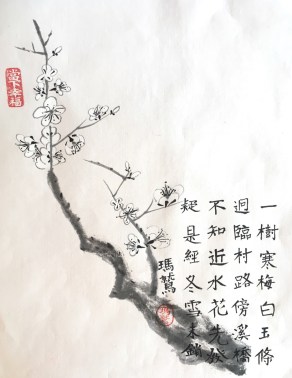 一樹寒梅白玉條
迥臨村路傍溪橋
不知近水花先發
疑是經冬雪未銷
瑪鷲
當下幸福